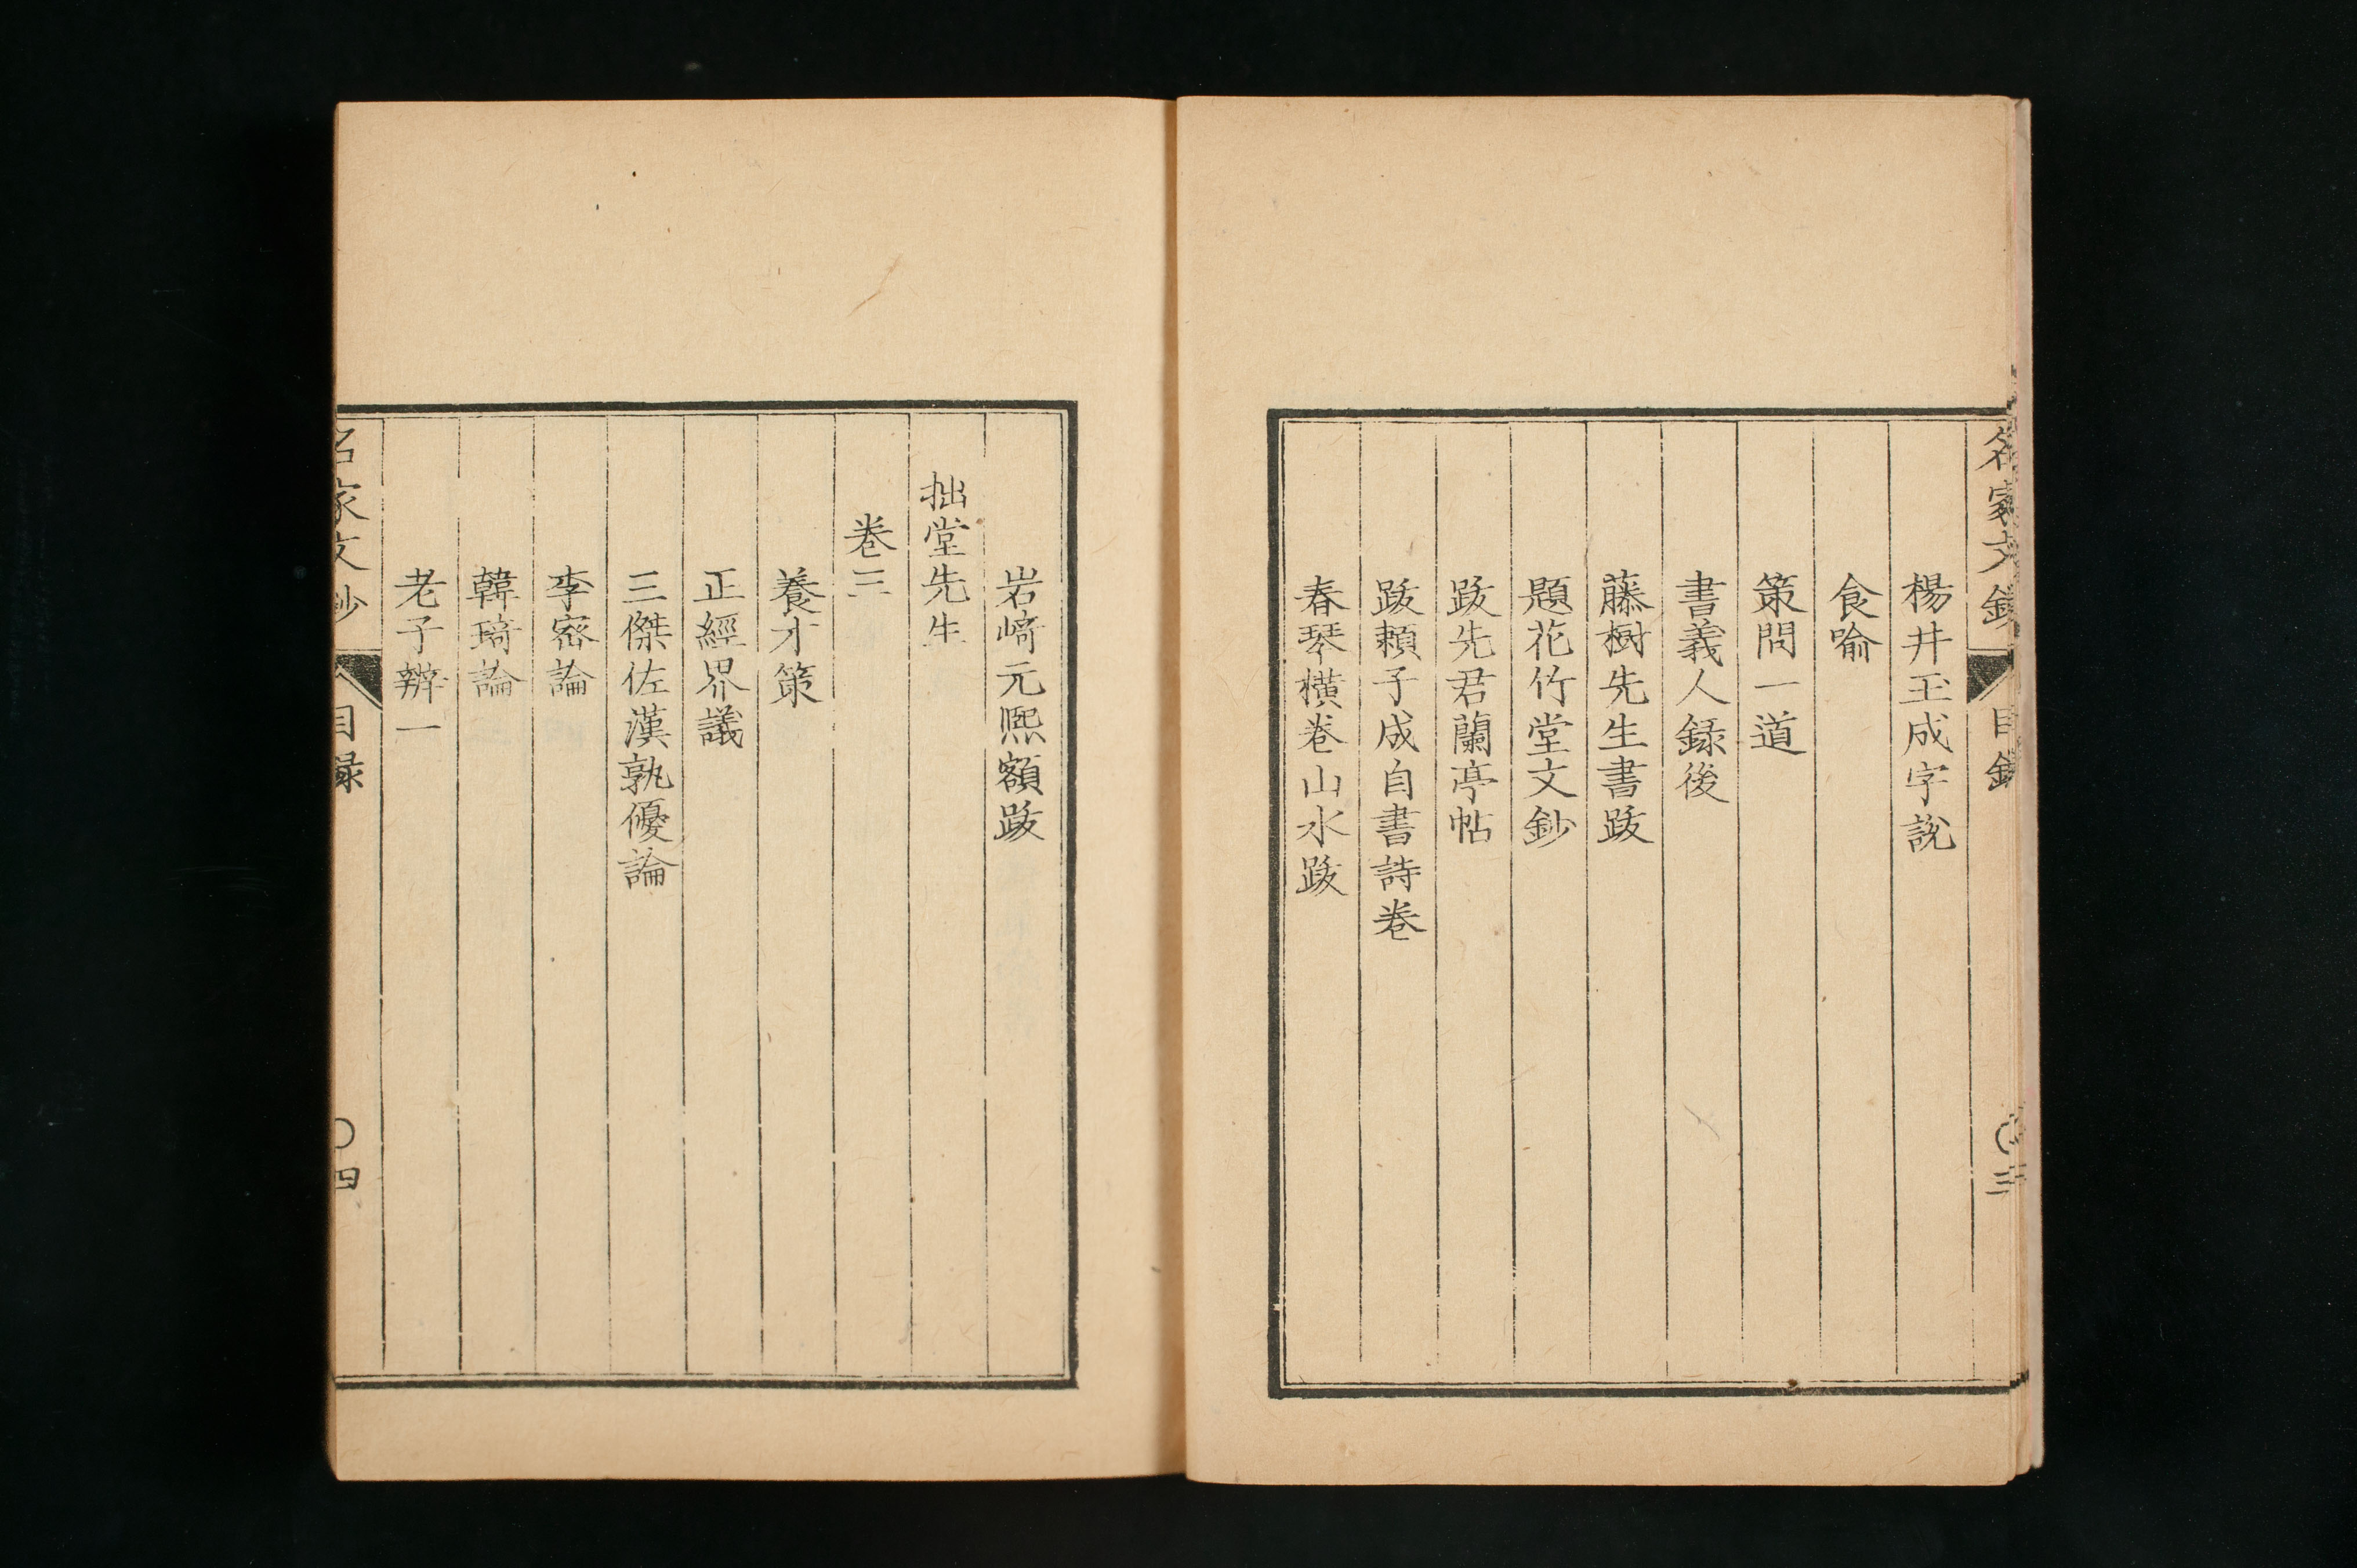 名家文鈔 目錄 〇三
楊井玉成字說
食喻
策問一道
書義人録後
藤樹先生書跋
題花竹堂文鈔
跋先君蘭亭帖
跋賴子成自書詩卷
春琴橫卷山水跋
岩﨑元熈額跋
拙堂先生
卷三
養才策
正經界議
三傑佐漢孰優論
李宻論
韓琦論
老子辨一
名家文鈔 目録 〇四